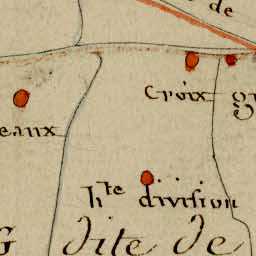 de
Croix
eaux
h.te division
dite de